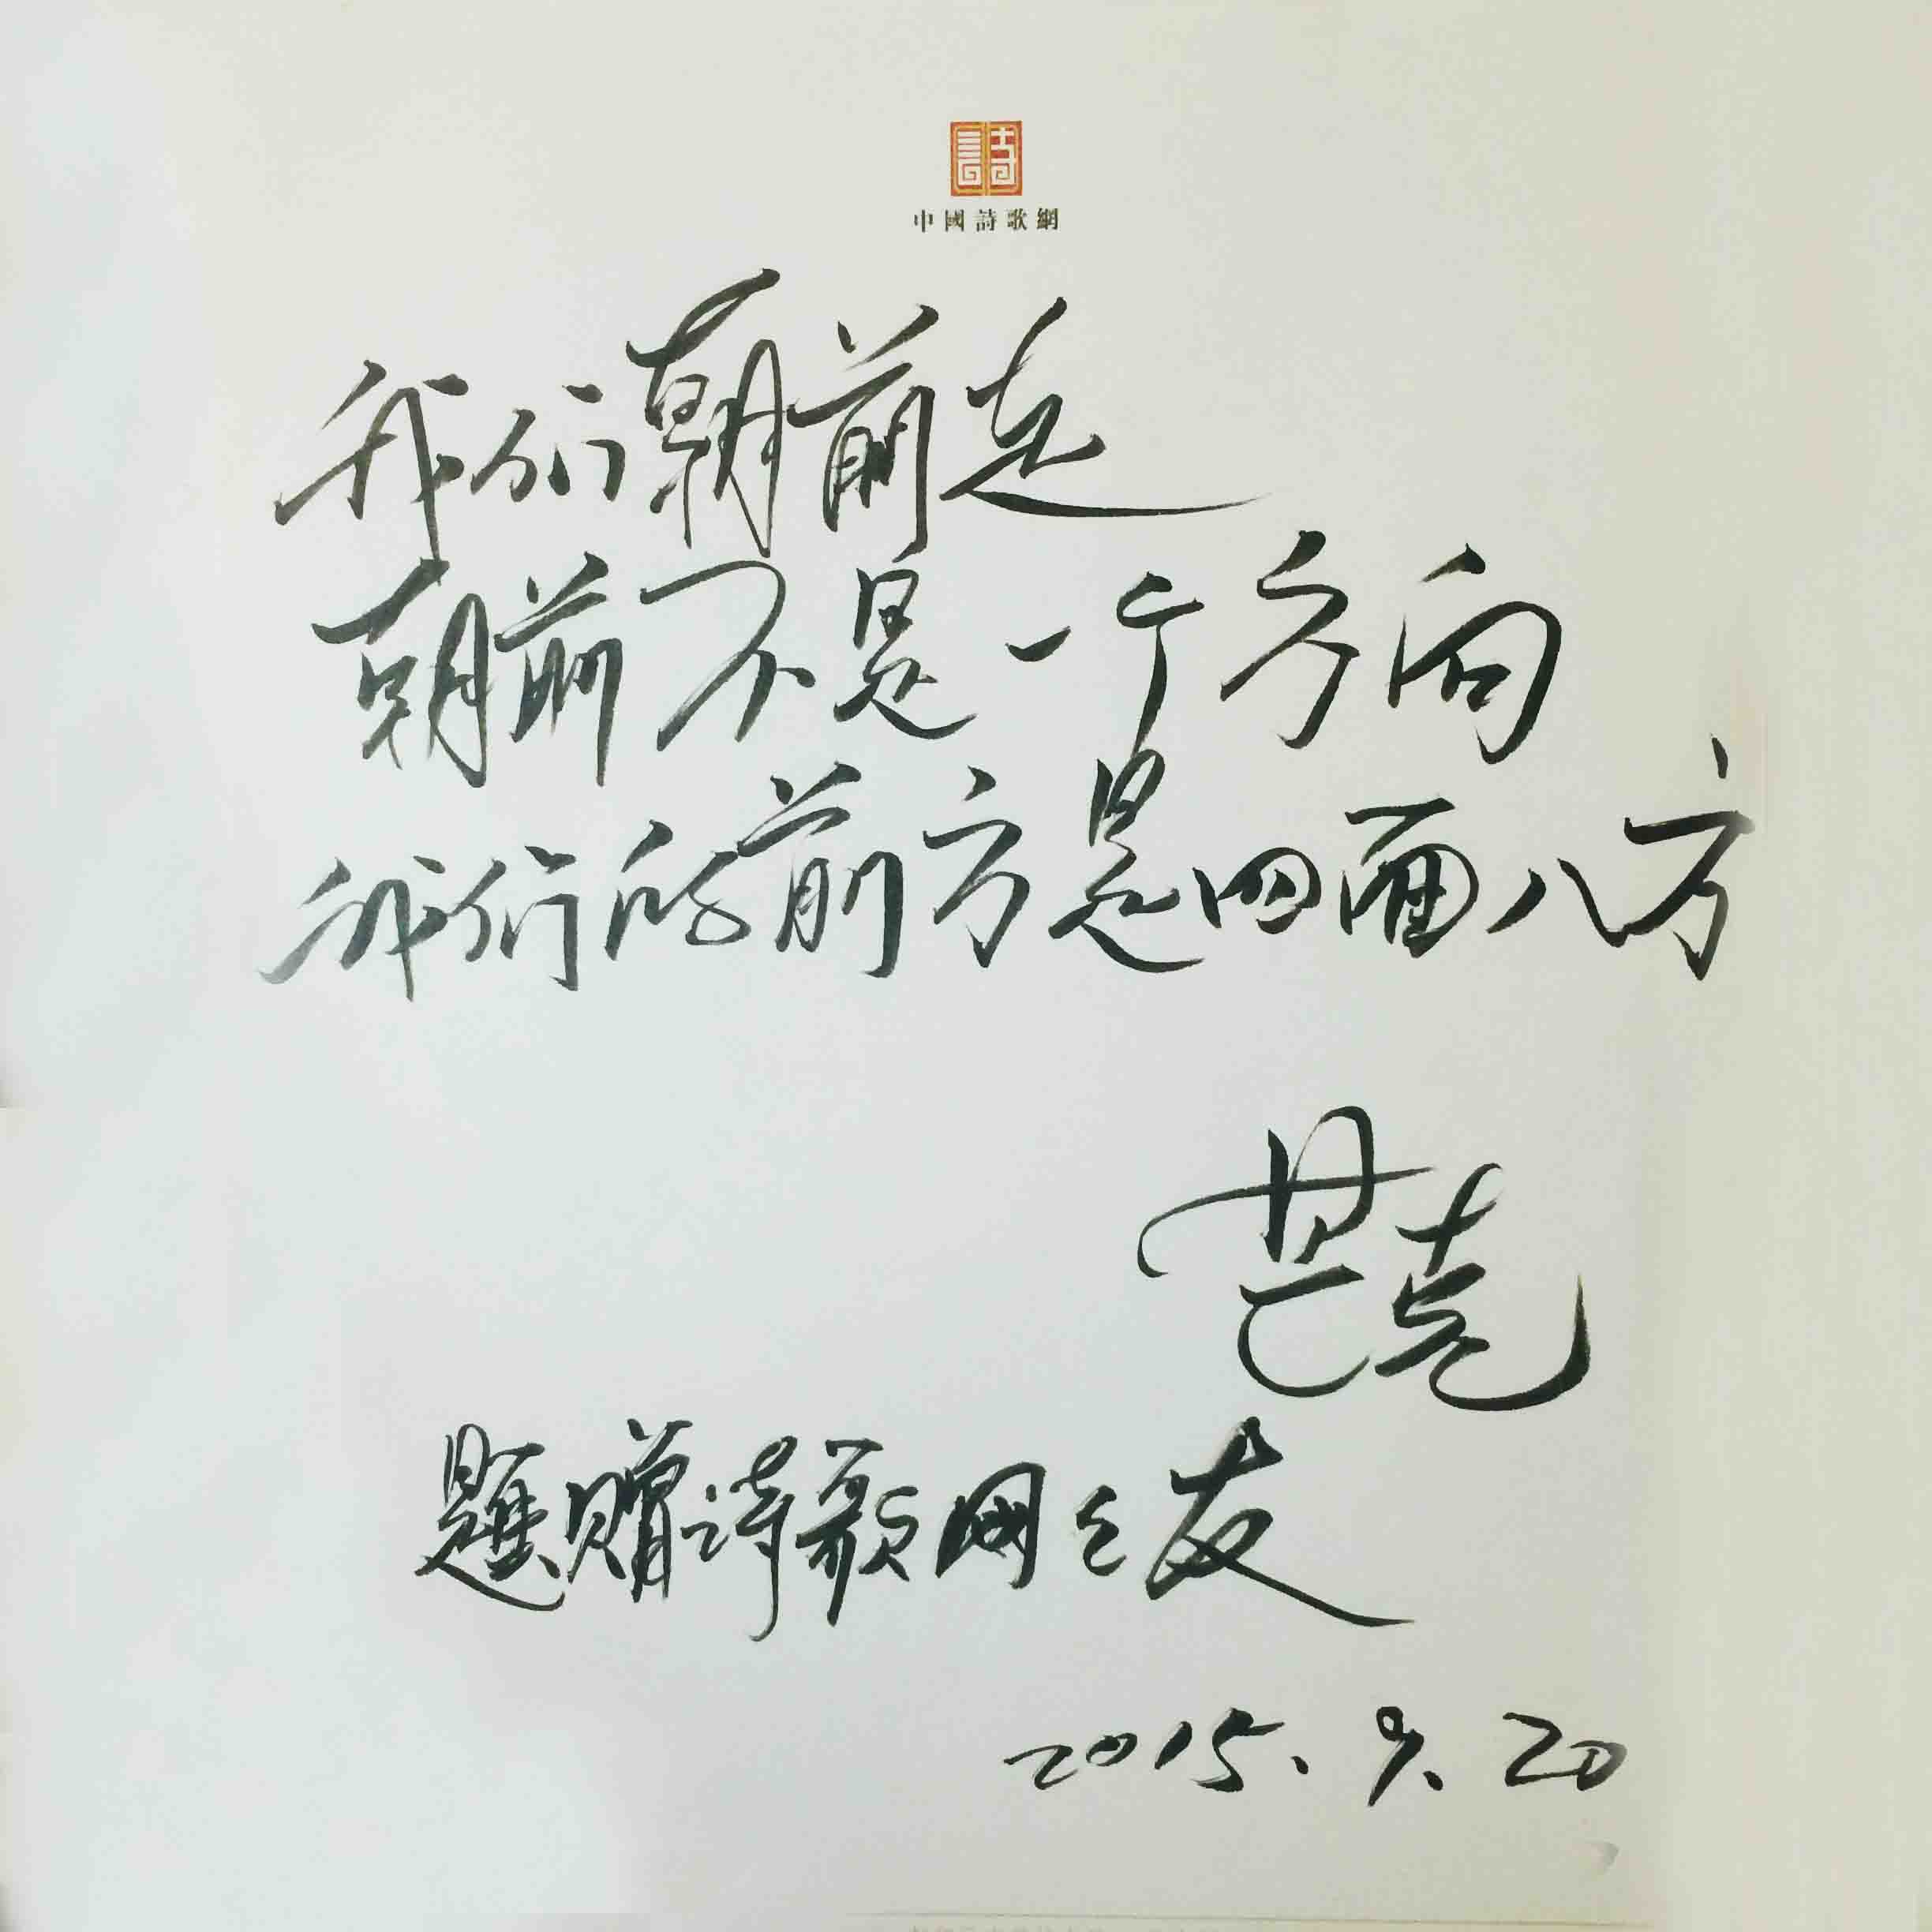 詩
中國詩歌網
我们朝前走
朝前不是一个方向
我们的前方是四面八方
芒克
题赠诗歌网之友
2015.9.20